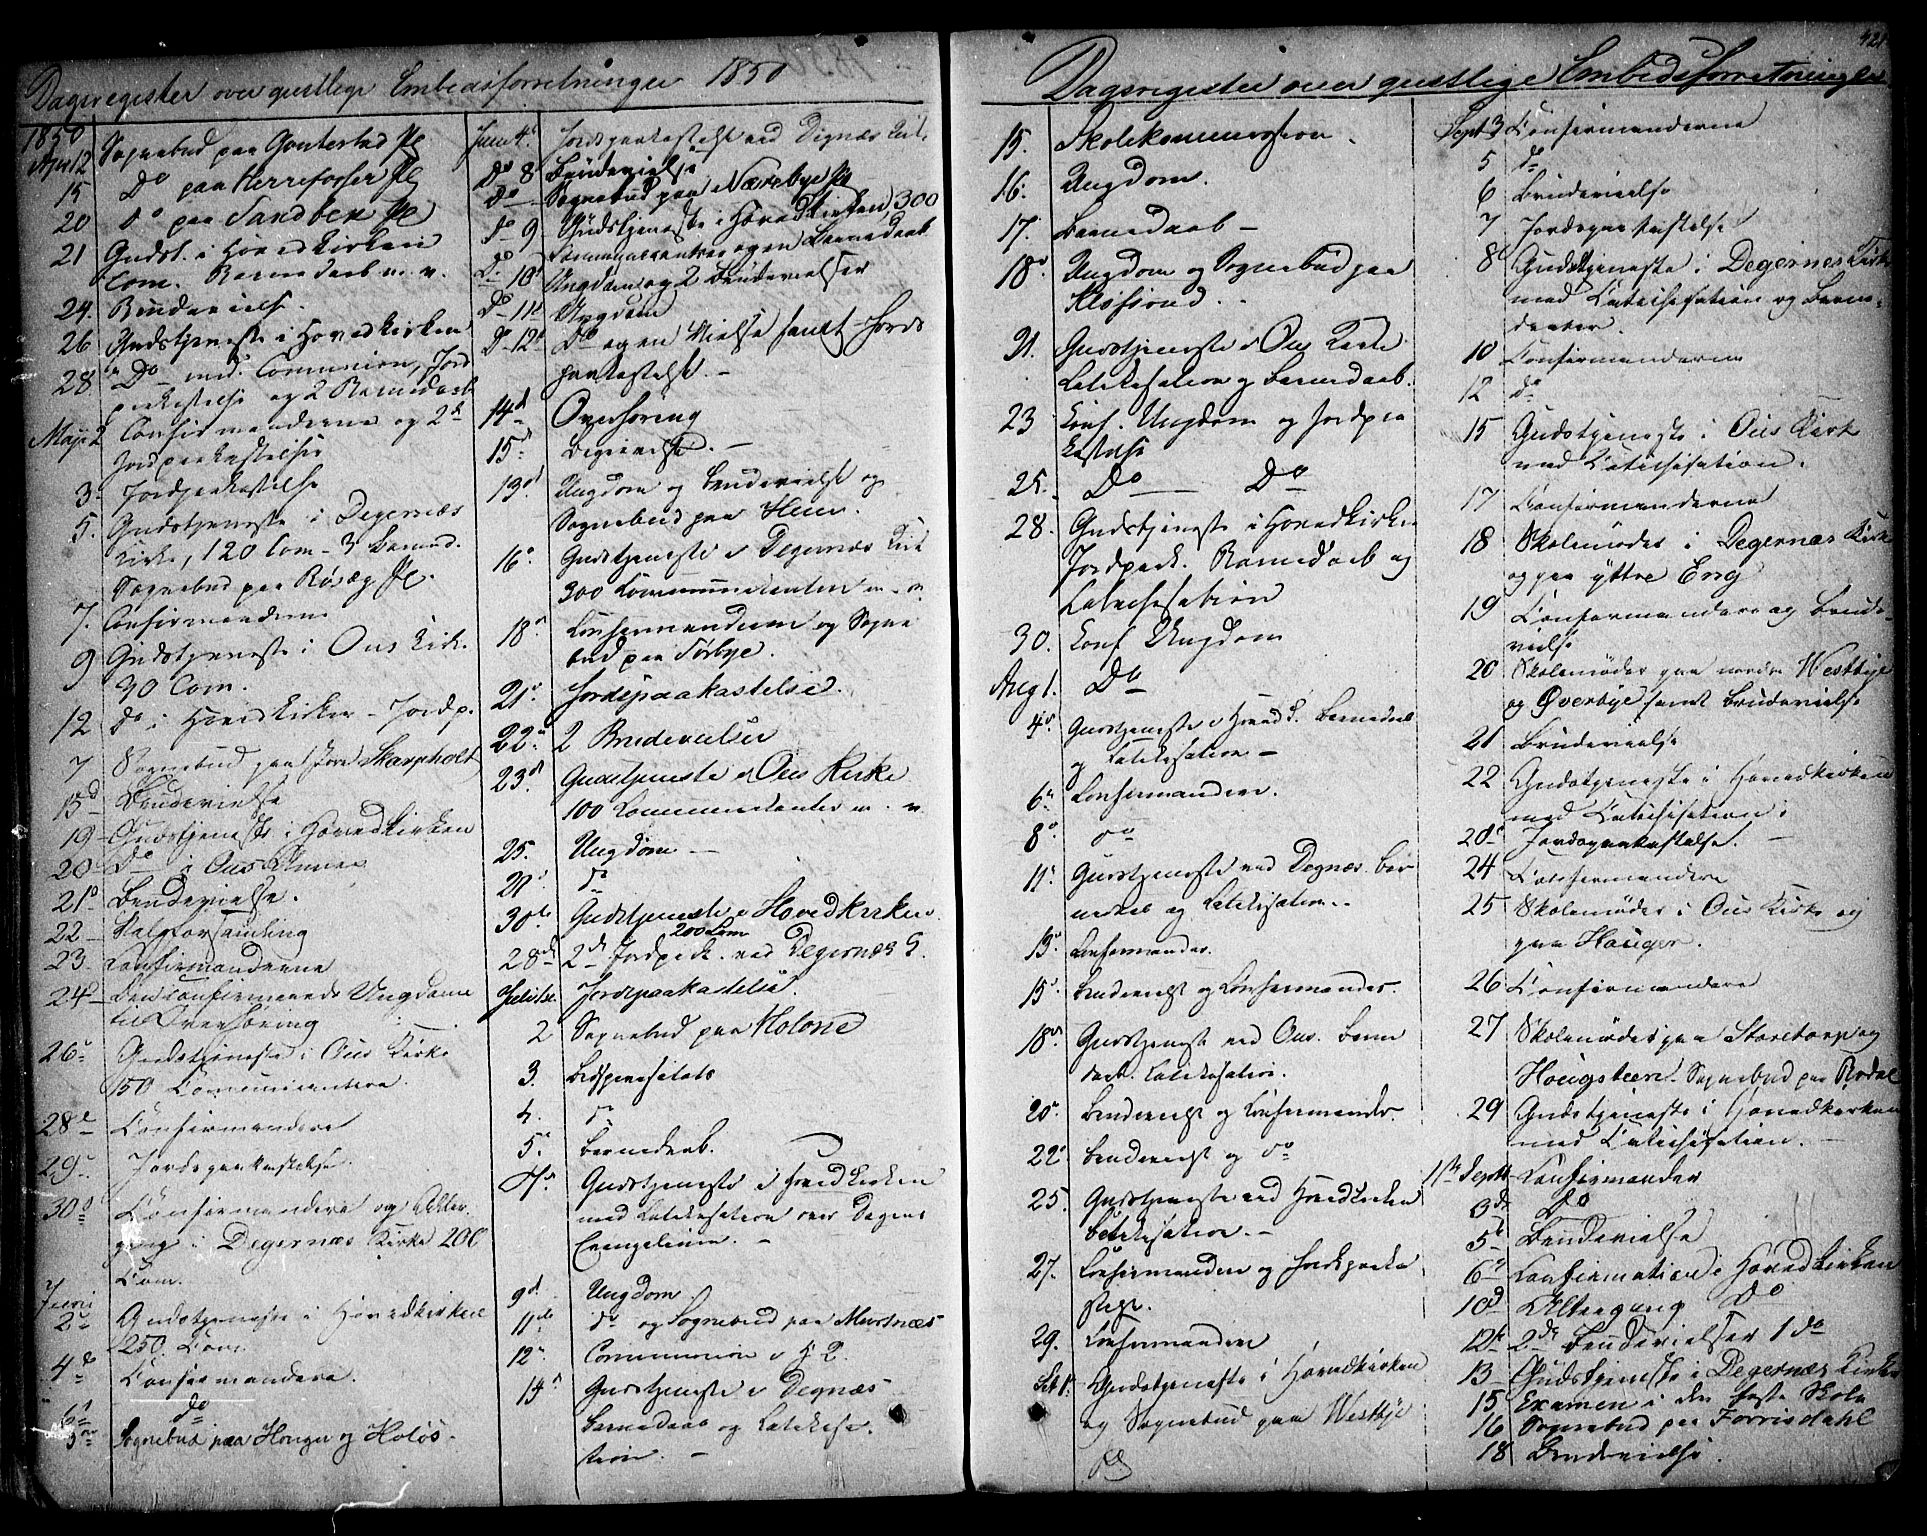 Dagsregister over geistlige Embedsforretninger 1850
1850
April 12 Sognebud paa Gautestad Pl
15 Do paa Herrefosser Pl
20 do paa Sandbek Pl
21 Gudst. i Hovedkirken
Com. Barnedaab m. v.
24. Brudevielse.
26 Gudstjeneste i Hovedkirken
28. Do med Communion, Jord
paakastelse og 2 Barnedaab
Maji 2 Confirmanderne og 2de
Jordpaakastelser
3. Jordpaakastelse
5. Gudstjeneste i Degernæs
Kirke, 120 Com - 3 Barned.
Sognebud paa Pl.
7. Confirmanderne
9 Gudstjeneste i Ous Kirke.
30 Com.
12 do i Hovedkirken - Jordp.
7 Sognebud paa Skarpholt
15d Brudevielse
19 Gudstjeneste i Hovedkirken
20 Do i Ous
21d Brudevielse.
22 Valgforsamling
23 Confirmanderne
24d Den confirmerede Ungdom
til Overhøring
26 Gudstjeneste i Ous Kirke
150 Communicantere.
28e Confirmandere
29 Jordspaakastelse.
30d Confirmandere og Alter
gang i Degernæs Kirke 200
Com.
Juni
2 Gudstjeneste i Hovedkirken
250. Com.
4de Confirmandere.
6 do
Sognebud paa Houger og Holøs
Juni 4 Jordspaakastelse ved Degnæs Kirk
Do 8 Brudevielse
Do Sognebud paa Nærebye Pl
Do 9 Gudstjeneste i Hovedkirken, 300
Communicanter og en Barnedaab
Do 10 Ungdom og 2 Brudevielser
Do 11 Ungdom
Do 12 Do og en Vielse samt Jords
paakastelse. -
14d Overhøring
15 Begravelse. -
13d Ungdom og Brudevielse og
Sognebud paa Heer.
16 Gudstjeneste i Degernæs Kirk
300 Communicanter m. v.
18 Confirmanderne og Sogne
bud paa Torbye.
21 Jordspaakastelse.
22 2 Brudevielser
23d Gudstjeneste i Ous Kirke
100 Communicanter m. v.
25. Ungdom -
27 do
30te Gudstjeneste i Hovedkirken
200 Com
28de 2de Jordpaak. ved Degernæs K.
Juli 1ste Jordspaakastelse.
2 Sognebud paa Holone
3.
4. do
5 Barnedaab.
7 Gudstjeneste i Hovedkirken
med Catekisation over Dagens
Evangelium. -
9d Ungdom.
11te do og Sognebud paa
12 Communion i
14 Gudstjeneste i Degnæs
Barnedaab og Catekisa
tion. -
Dagsregister over geistlige Embedsforretninger
421
15. Skolekommission.
16. Ungdom.
17. Barnedaab -
18 Ungdom og Sognebud paa
21. Gudstjeneste i Ous Kirke
Catekisation og Barnedaab.
23 Conf. Ungdom og Jordpaa
kastelse
25. Do Do
28. Gudstjeneste i Hovedkirken
Jordpaak. Barnedaab og
Catechisation
30. Conf Ungdom
Aug 1. Do
4 Gudstjeneste i Hoved K. Barnedaab
og Catekisation -
6 Confirmandere.
8 do
11 Gudstjeneste ved Degnæs. Bar
nedaab og Catekisation.
13 Confirmander.
15 Brudevielse og Confirmander.
18 Gudstjeneste ved Ous. Barne
daab. Catekisation.
20 Brudevielse og Confirmander
22 Brudevielse og do
25. Gudstjeneste ved Hovedkirken
Catekisation. -
27. Confirmandere og Jordspaaka
stelse.
29. Confirmandere
Sept 1 Gudstjeneste i Hovedkirken
og Sognebud paa Westbye
Sept 3 Confirmanderne
5 do
6 Brudevielse
7 Jordspaakastelse
8 Gudstjeneste i Degernes Kirke
med Catechisation og Barne-
daaber.
10 Confirmanderne
12 do
15 Gudstjeneste i Ous Kirk
med Catechisation.
17 Confirmanderne
18 Skolemøder i Degernæs Kirk
og paa yttre Eng
19 Confirmandere og Brude-
vielse
20 Skolemøder paa nordre Westbye
og Øverbye samt Brudevielse
21 Brudevielse
22 Gudstjeneste i Hovedkirken
med Catechisation:
20de Jordspaakastelse. -
24 Confirmandere
25 Skolemøder i Ous Kirke og
paa Houger.
26 Confirmandere
27 Skolemøder paa Storetorp og
Hougsteen. Sognebud paa Rodal
29 Gudstjeneste i Hovedkirken
med Catechisation. -
1ste Confirmander
3d Do
5t Brudevielse
6 Confirmation i Hovedkirken
10d Altergang Do
12te 2de Brudevielser 1 do
13 Gudstjeneste i Degernæs Kirke
15 Examen i den faste Skole
16 Sognebud paa Forrisdahl
18 Brudevielse.